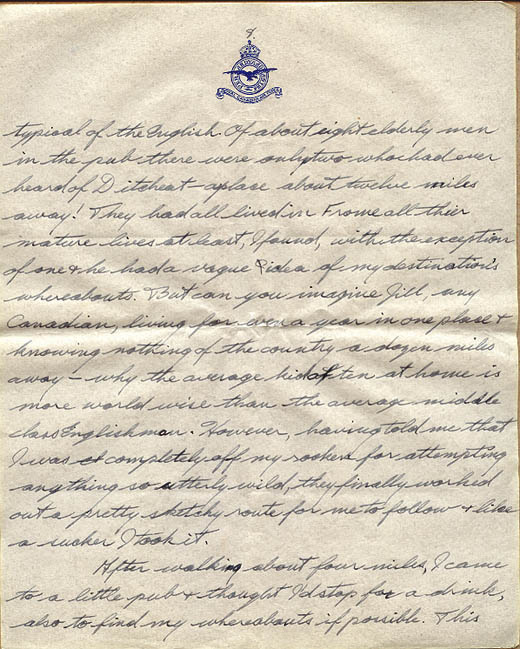 8.
ROYAL CANADIAN AIR FORCE
typical of the English. Of about eight elderly men
in the pub there were only two who had ever
heard of Ditcheat - a place about twelve miles
away! They had all lived in Frome all thier
mature lives at least, I found, with the exception
of one & he had a vague idea of my destination's
whereabouts. But can you imagine Jill, any
Canadian, living for even a year in one place &
knowing nothing of the country a dozen miles
away - why the average kid of ten at home is
more world wise than the average middle
class Englishman. However, having told me that
I was completely off my rocker for attempting
anything so utterly wild, they finally worked
out a pretty sketchy route for me to follow & like
a sucker I took it.
After walking about four miles, I came
to a little pub & thought I'd stop for a drink,
also to find my whereabouts if possible. This